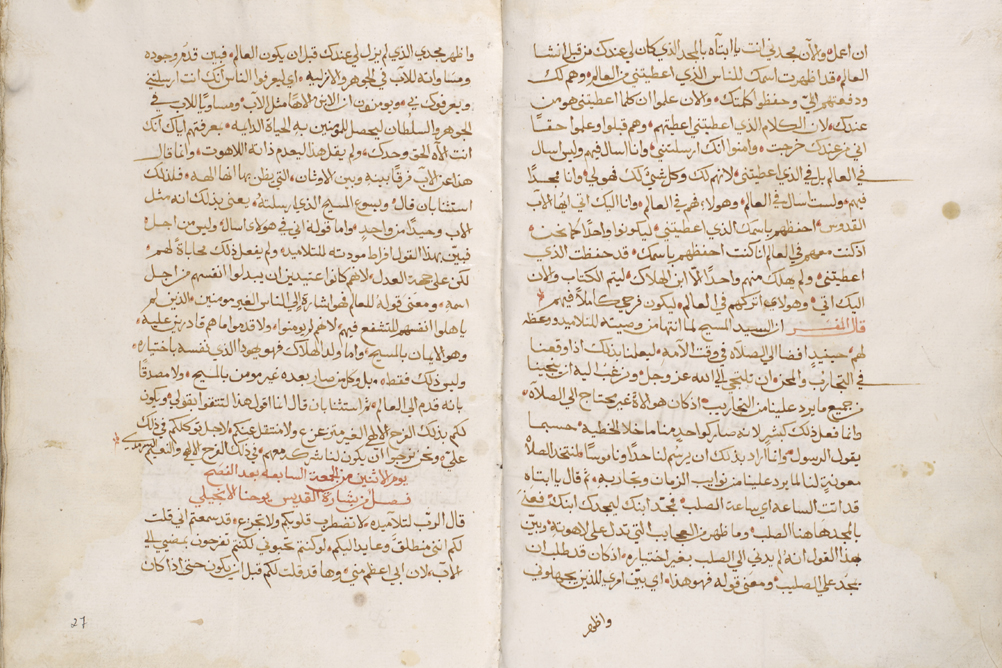 ان اعمل والان مجدني انت يا ابتاه بالمجد الذي كان لي عندك من قبل انشا
العالم قد اظهرت اسمك للناس الذي اعطيتني من العالم وهم لك
ودفعتهم الي وحفظوا كلمتك والان علموا ان كلما اعطيتني هو من
عندك لان الكلام الذي اعطيتني اعطيتهم وهم قبلوا وعلموا حقا
اني من عندك خرجت وامنوا انك ارسلتني وانا اسال فيهم وليس اسال
في العالم بل في الذي اعطيتني لانهم لك وكل شي لك فهو لي وانا ممجدا
فيهم ولست اسال في العالم وهولاء هم في العالم وانا اليك اتي ايها الاب
القدوس احفظهم باسمك الذي اعطيتني ليكونوا واحدا كما نحن
اذ كنت معهم في العالم انا كنت احفظهم باسمك قد حفظت الذي
اعطيتني ولم يهلك منهم واحدا الا ابن الهلاك ليتم الكتاب والان
اليك اتي وهولاء اتركهم في العالم ليكون فرحي كاملا فيهم
قال المفسر ان السيد المسيح لما انتها من وصيته للتلاميذ ووعظه
لهم حينيذ افضا الي الصلاه في وقت الامه ليعلمنا بذلك اذا وقعنا
في التجارب والمحن ان نلتجي الي الله عز وجل ونرغب اليه ان ينجينا
من جميع ما يرد علينا من التجاريب اذ كان هو لا غير محتاج الي الصلاه
وانما فعل ذلك كبشر لانه صار كواحد منا ما خلا الخطيه حسبما
يقول الرسول وانما اراد بذلك ان يرسم لنا حدا وناموسا لنتخذ الصلاه
معونة لنا لما يرد علينا من نوايب الزمان وتجاربه ثم قال يا ابتاه
قد اتت الساعه اي ساعة الصلب مجد ابنك ليمجدك ابنك فعنا
بالمجد هاهنا الصلب وما ظهر من العجايب التي تدل علي لاهوته وبين
بهذا القول انه لم يدني الي الصلب بغير اختياره اذ كان قد طلب ان
يمجد علي الصليب ومعني قوله فهو هذا اي بين امري للذين يجهلوني
واظهر
واظهر مجدي الذي لم يزل لي عندك قبل ان يكون العالم فبين قدم وجوده
ومساواته للاب في الجوهر والازليه اي ليعرفوا الناس انك انت ارسلتني
ويعرفوك بي ويومنون ان الابن الاها مثل الاب ومساويا للاب في
الجوهر والسلطان ليحصل للمومنين به الحياة الدايمه بمعرفتهم اياك انك
انت الاله الحق وحدك ولم يقل هذا ليعدم ذاته اللاهوت وانما قال
هذا عن الاب فرقا بينه وبين الاوثان التي يظن بها انها الهه فلذلك
استثنا بان قال ويسوع المسيح الذي ارسلته يعني بذلك انه مثل
الاب وحيدا من واحد واما قوله اني في هولاي اسال وليس من اجل
فبين بهذا القول افراط مودته للتلاميذ ولم يفعل ذلك محاباة لهم
لكن علي جهة العدل لانهم كانوا عتيدين ان يبدلوا انفسهم من اجل
اسمه ومعني قوله للعالم فهو اشاره الي الناس الغير مومنين الذين لم
ياهلوا انفسهم للتشفع فيهم لانهم لم يومنوا ولا قدموا ما هم قادرين عليه
وهو الايمان بالمسيح واما ولد الهلاك فهو يهودا الذي نفسه باختياره
وليس ذلك فقط بل وكل من صار بعده غير مومن بالمسيح ولا مصدقا
بانه قدم الي العالم ثم استثنا بان قال انا اقول هذا لتثقوا بقولي ويكون
لكم بذلك الفرح الالهي الغير متزعزع ولا منتقل عنكم لاجل توكلكم في ذلك
علي ونحن نرجوا ان يكون لنا شركه معهم في ذلك الفرح الالهي والنعيم السرمدي
يوم الاثنين من الجمعة السابعه بعد الفسح
فصل من بشارة القديس يوحنا الانجيلي
قال الرب لتلاميذه لا تضطرب قلوبكم ولا تجزع قد سمعتم اني قلت
لكم اني منطلق وعايد اليكم لو كنتم تحبوني لكنتم تفرحون بمضيي الي
الاب لان ابي اعظم مني وها قد قلت لكم قبل ان يكون حتي اذا كان
27